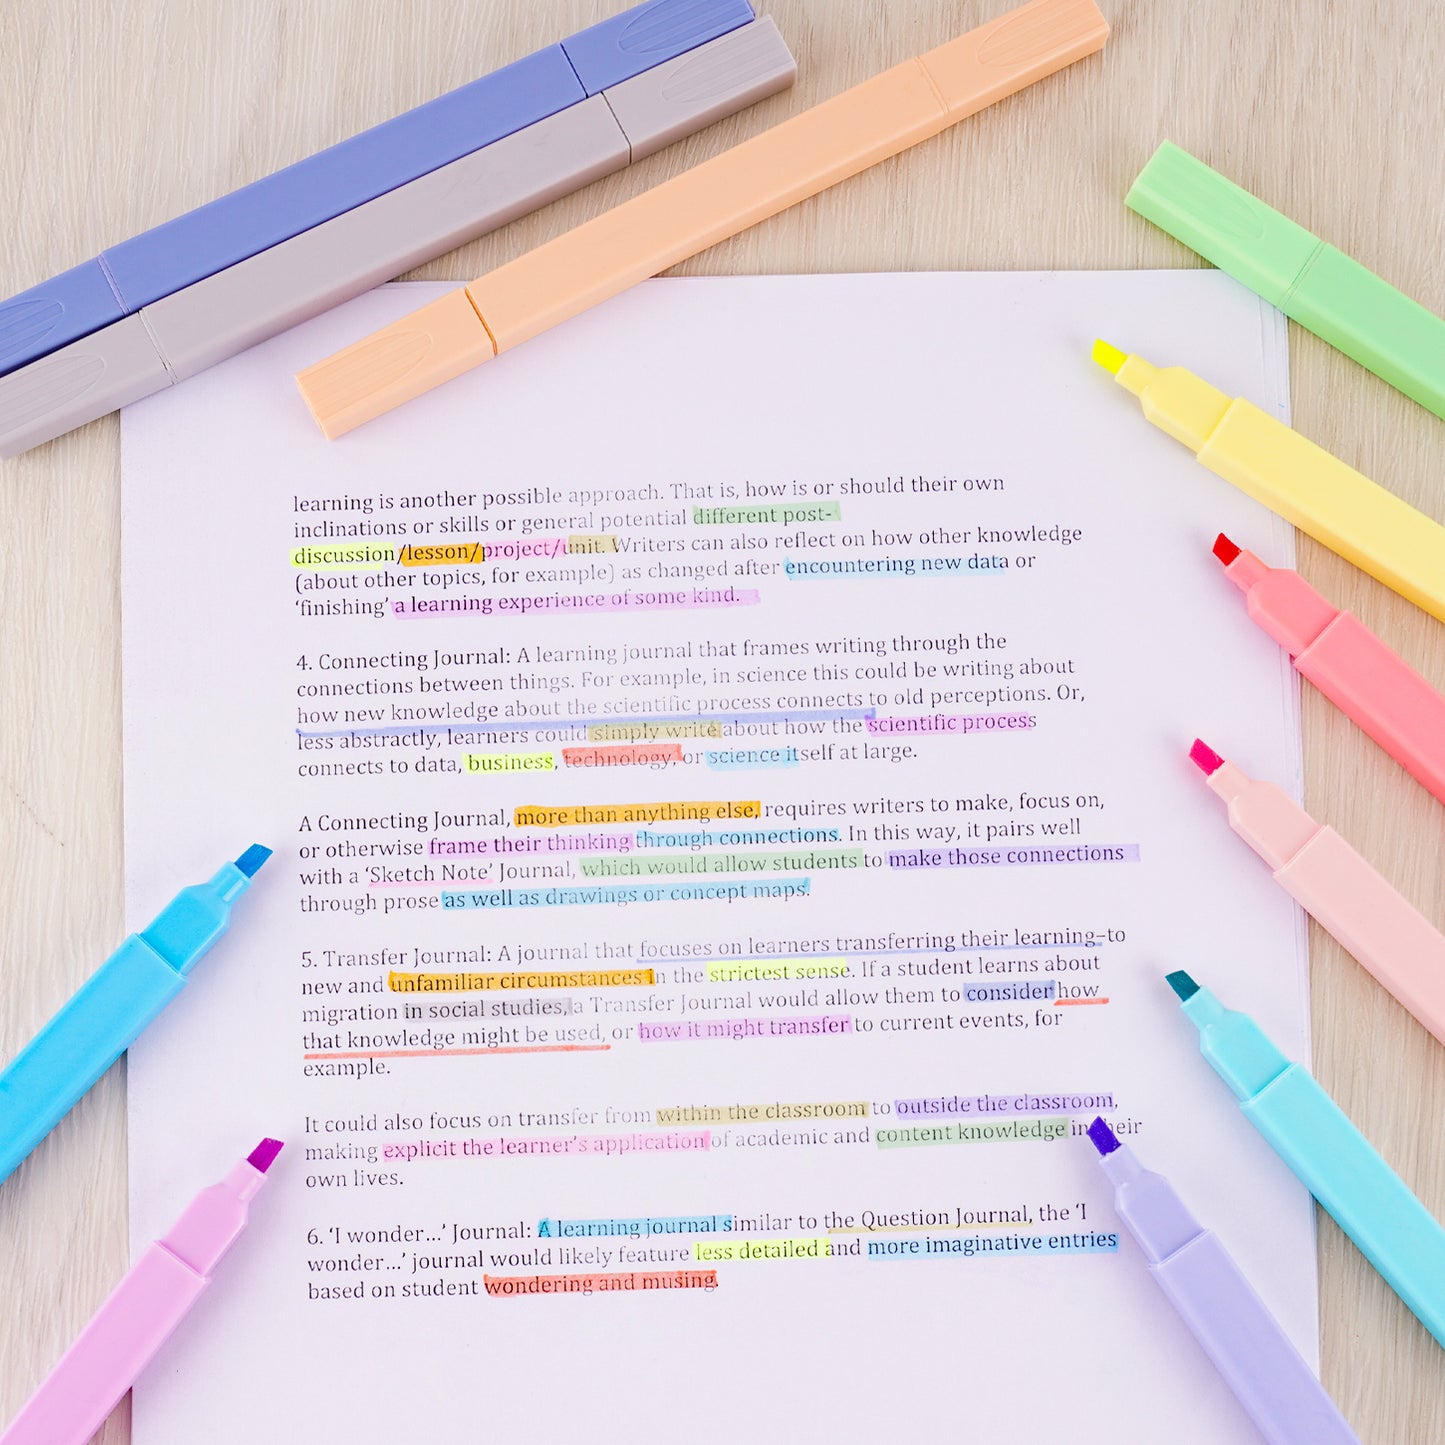 learning is another possible approach. That is, how is or should their own
inclinations or skills or general potential different post-
discussion/lesson/project/unit. Writers can also reflect on how other knowledge
(about other topics, for example) as changed after encountering new data or
‘finishing’ a learning experience of some kind.
4. Connecting Journal: A learning journal that frames writing through the
connections between things. For example, in science this could be writing about
how new knowledge about the scientific process connects to old perceptions. Or,
less abstractly, learners could simply write about how the scientific process
connects to data, business, technology, or science itself at large.
A Connecting Journal, more than anything else, requires writers to make, focus on,
or otherwise frame their thinking through connections. In this way, it pairs well
with a ‘Sketch Note’ Journal, which would allow students to make those connections
through prose as well as drawings or concept maps.
5. Transfer Journal: A journal that focuses on learners transferring their learning–to
new and unfamiliar circumstances in the strictest sense. If a student learns about
migration in social studies, a Transfer Journal would allow them to consider how
that knowledge might be used, or how it might transfer to current events, for
example.
It could also focus on transfer from within the classroom to outside the classroom,
making explicit the learner’s application of academic and content knowledge in their
own lives.
6. ‘I wonder…’ Journal: A learning journal similar to the Question Journal, the ‘I
wonder…’ journal would likely feature less detailed and more imaginative entries
based on student wondering and musing.